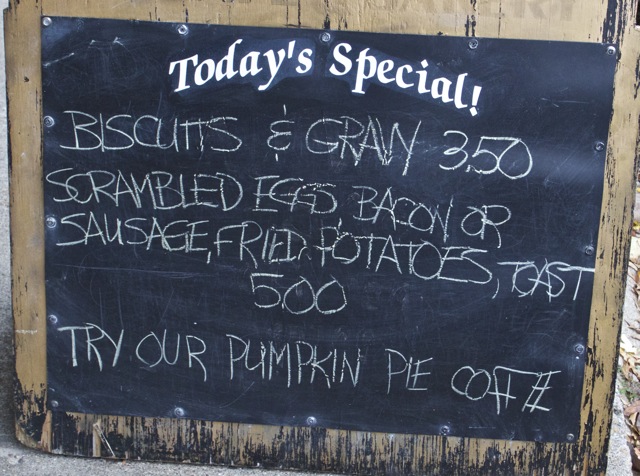 Today's Special!
BISCUITS & GRAVY 350
SCRAMBLED EGGS, BACON OR
SAUSAGE, FRIED POTATOES, TOAST
500
TRY OUR PUMPKIN PIE COFFEE